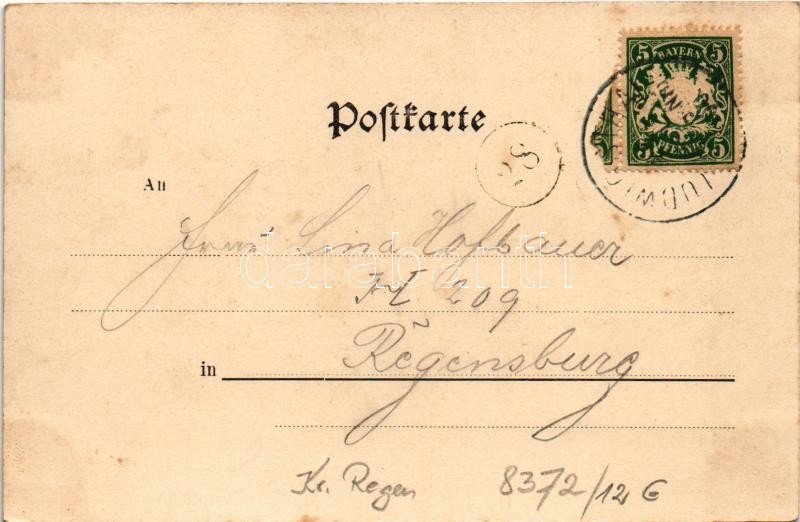 5 BAYERN 5
5 PFENNIG 5
Postkarte
An
Frau Lina Hofbauer
209
in Regensburg
Kr. Regen 8372/12 G
darabanth